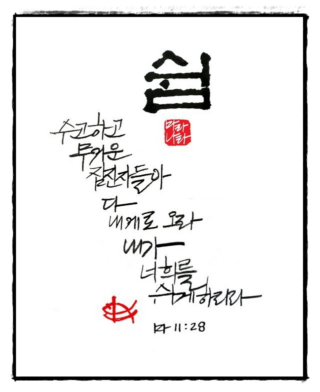 쉼
수고하고
무거운
짐진자들아
다
내게로 오라
내가
너희를
쉬게하리라
마 11:28